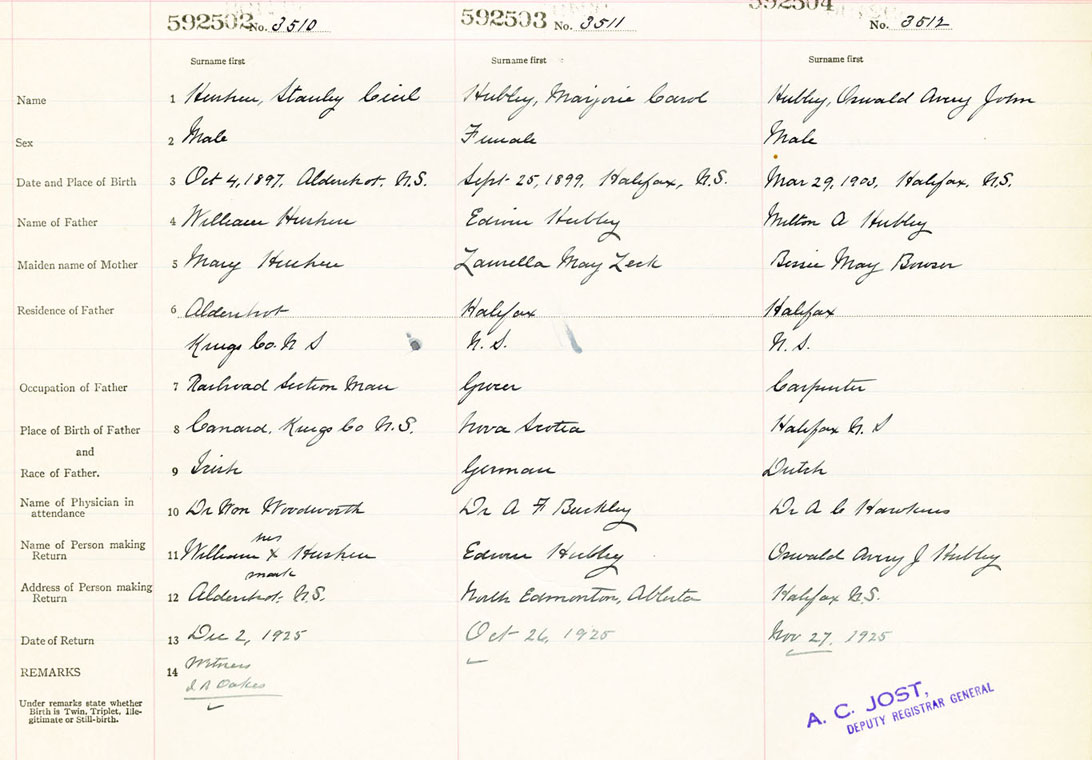 592502 No. 3510 592503 No. 3511 592504 No. 3512
Surname first Surname first Surname first
Name 1 Stanley Cecil Hubley, Marjorie Carol Hubley, Oswald Avery John
Sex 2 Male Female Male
Date and Place of Birth 3 Oct 4, 1897, Aldershot, N.S. Sept 25, 1899, Halifax, N.S. Mar 29, 1903, Halifax, N.S.
Name of Father 4 William Edwin Hubley Milton A Hubley
Maiden name of Mother 5 Mary May Zeck Bessie May Bowser
Residence of Father 6 Aldershot Halifax Halifax
Kings Co. N S N. S. N. S.
Occupation of Father 7 Railroad Section Man Grocer Carpenter
Place of Birth of Father 8 Canard, Kings Co N.S. Nova Scotia Halifax N. S
and
Race of Father. 9 Irish German Dutch
Name of Physician in
attendance 10 Dr Wm Woodworth Dr A F Buckley Dr A C Hawkins
his
Name of Person making
Return 11 William X Edwin Hubley Oswald Avery J Hubley
mark
Address of Person making
Return 12 Aldershot, N.S. North Edmonton, Alberta Halifax N.S.
Date of Return 13 Dec 2, 1925 Oct 26, 1925 Nov 27, 1925
REMARKS 14 Witness
Oakes
Under remarks state whether
Birth is Twin, Triplet, Ille-
gitimate or Still-birth.
A. C. JOST,
DEPUTY REGISTRAR GENERAL